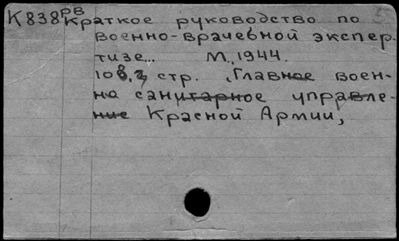 К838 РВ Краткое руководство по
военно-врачебной экспер-
тизе... М., 1944.
108, 2 стр. (Главное воен-
но санитарное управле-
ние Красной Армии,